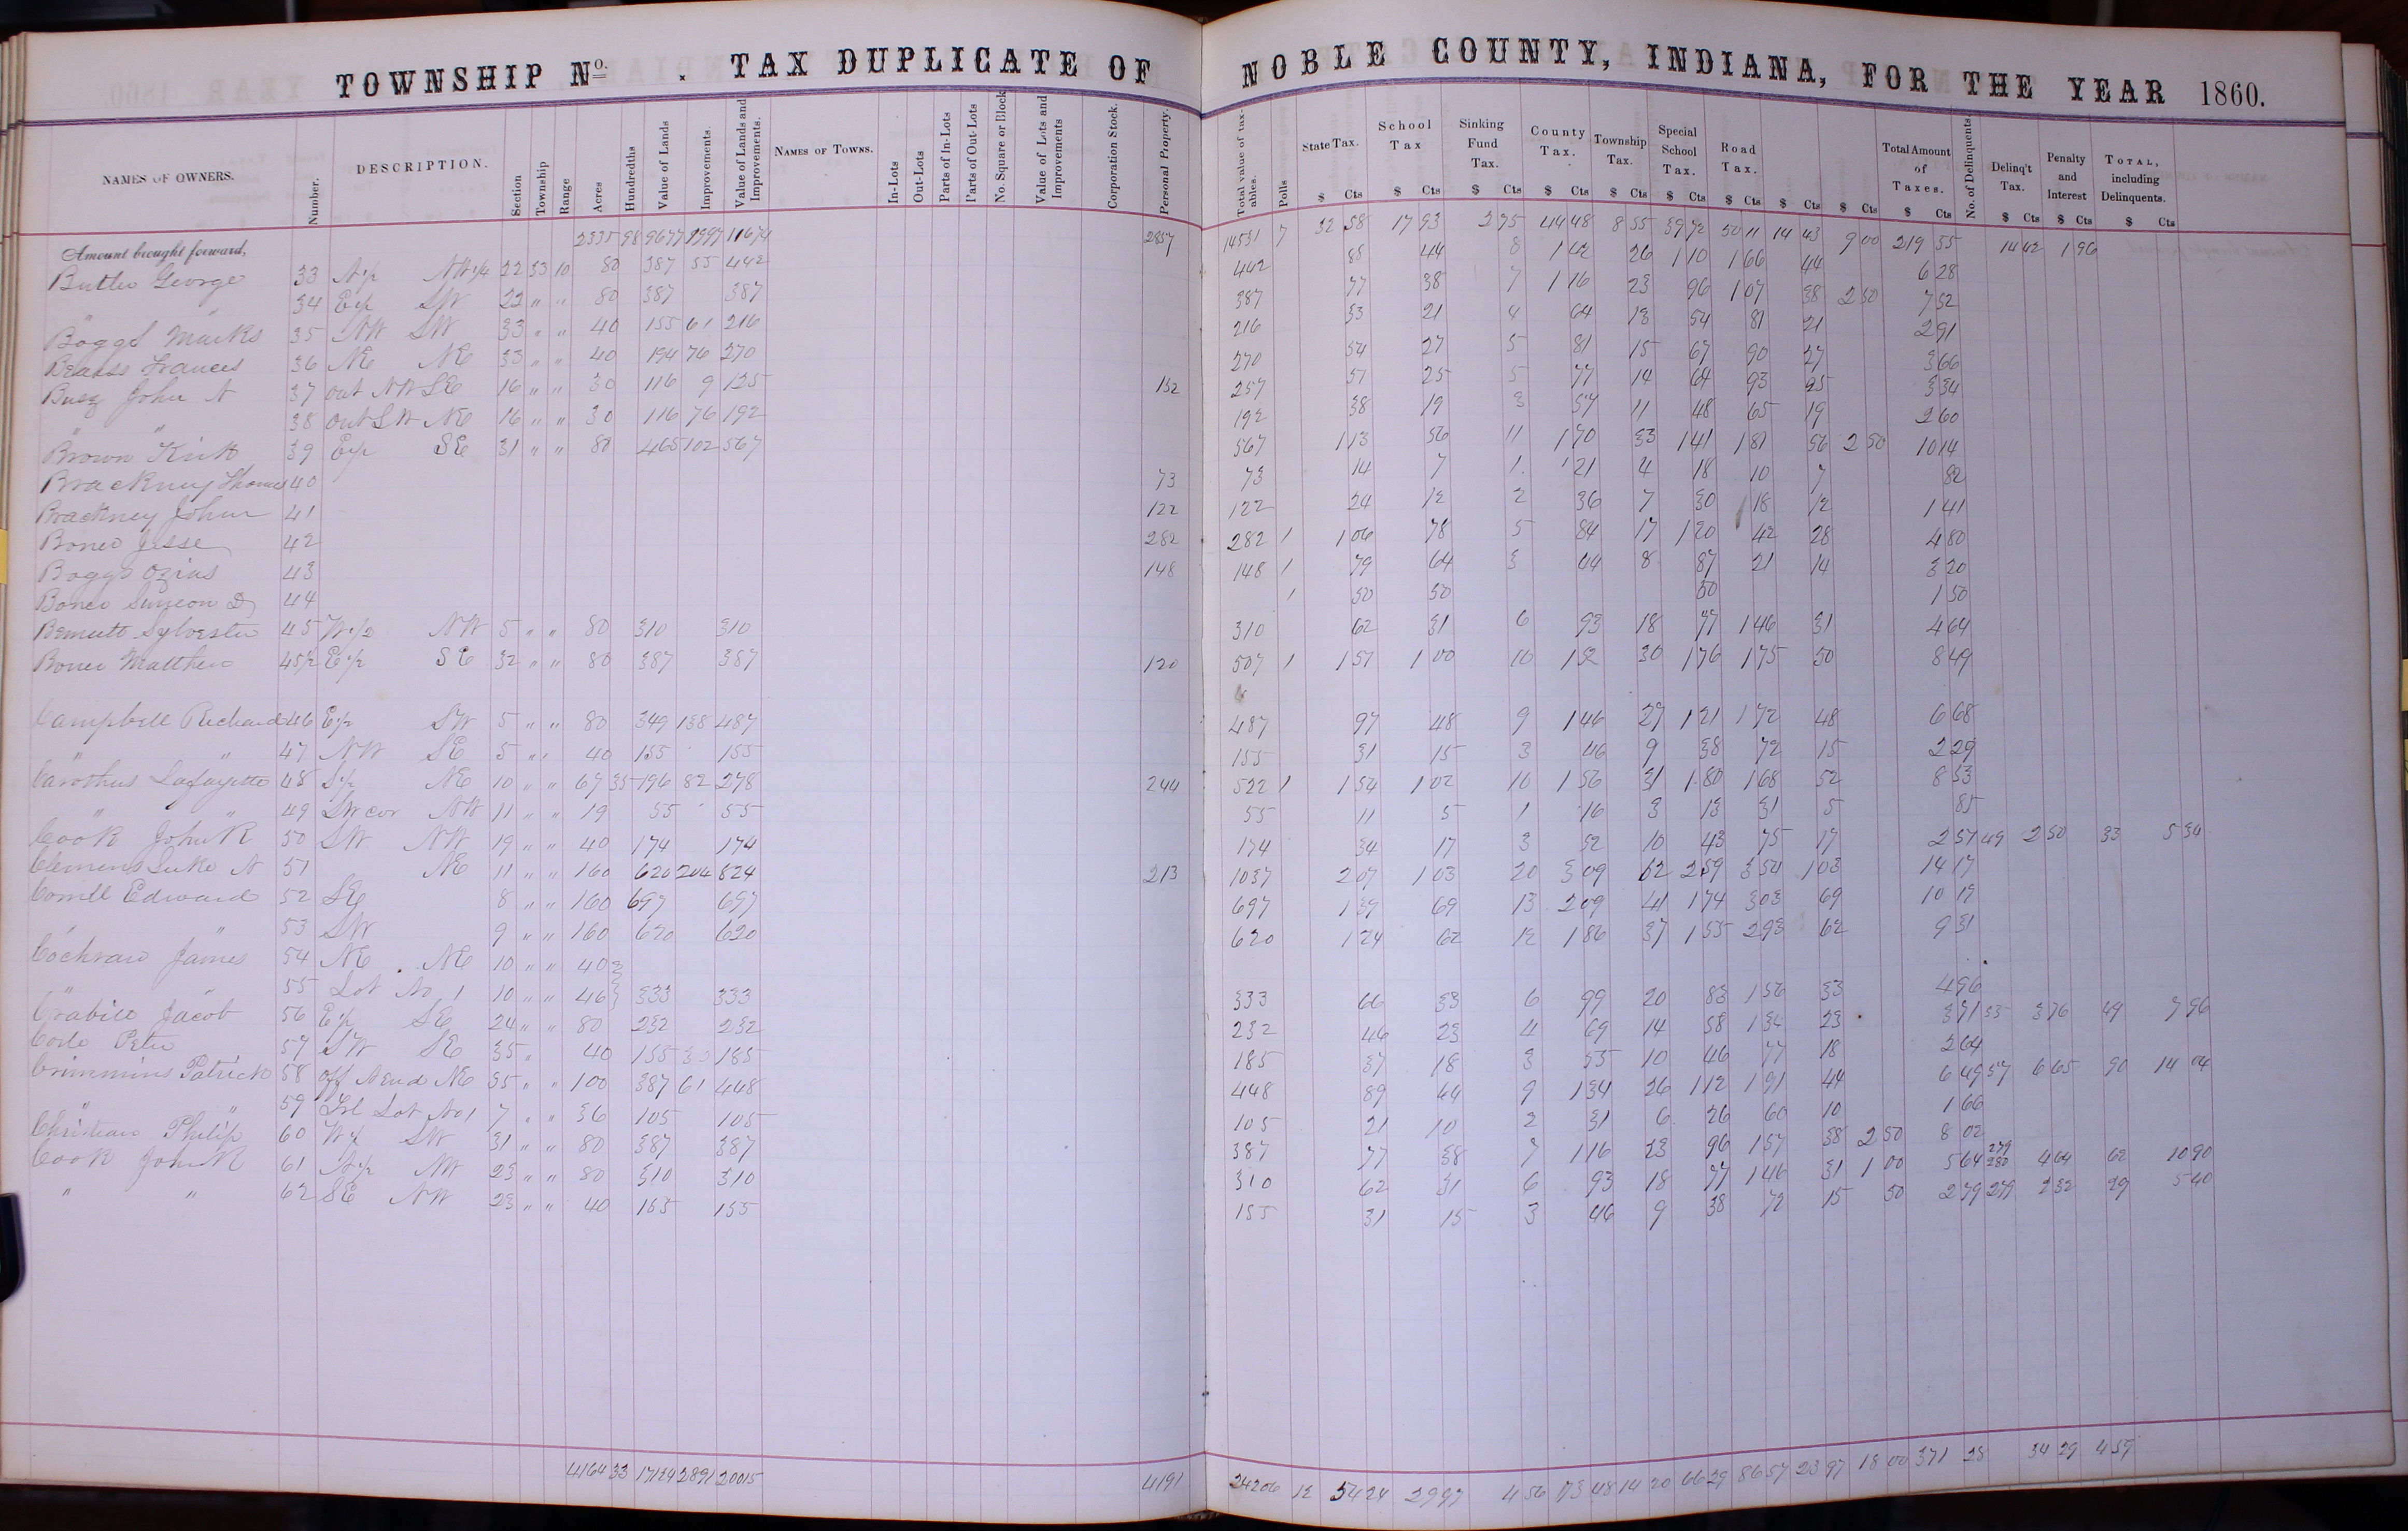 TOWNSHIP No. . TAX DUPLICATE OF NOBLE COUNTY, INDIANA, FOR THE YEAR 1860.
NAMES OF OWNERS. Number. DESCRIPTION. Section Township Range Acres Hundredths Value of Lands Improvements. Value of Lands and Improvements. NAMES OF TOWNS. In-Lots Out-Lots Parts of In-Lots Parts of Out-Lots No. Square or Block Value of Lots and Improvements Corporation Stock. Personal Property. Total value of taxables. Polls State Tax. School Tax Sinking Fund Tax. County Tax. Township Tax. Special School Tax. Road Tax. Total Amount of Taxes. No. of Delinquents Delinq't Tax. Penalty and Interest TOTAL, including Delinquents.
$ Cts $ Cts $ Cts $ Cts $ Cts $ Cts $ Cts $ Cts $ Cts $ Cts $ Cts $ Cts $ Cts
Amount brought forward, 2335 98 9677 1997 11674 2857 14531 7 32 58 17 93 2 75 44 48 8 55 39 72 50 11 14 43 9 00 219 55 14 42 1 96
Butler George 33 N 1/2 NW 1/4 22 33 10 80 387 55 442 442 88 44 8 1 42 26 1 10 1 66 44 6 28
" " 34 E 1/2 SW 22 " " 80 387 387 387 77 38 7 1 16 23 96 1 07 38 2 50 7 52
Boggs Marks 35 NW SW 33 " " 40 155 61 216 216 33 21 4 64 13 54 81 21 2 91
Frances 36 NE NE 33 " " 40 194 76 270 270 54 27 5 81 15 67 90 27 3 66
John N 37 out NW SE 16 " " 30 116 9 125 132 257 51 25 5 77 14 64 93 25 3 34
" " 38 out SW NE 16 " " 30 116 76 192 192 38 19 3 57 11 48 65 19 2 60
Brown 39 E 1/2 SE 31 " " 80 465 102 567 567 1 13 56 11 1 70 33 1 41 1 81 56 2 50 10 14
Brackney Thomas 40 73 73 14 7 1 21 4 18 10 7 82
Brackney John 41 122 122 24 12 2 36 7 30 18 12 1 41
Boner Jesse 42 282 282 1 1 06 78 5 84 17 1 20 42 28 4 80
Boggs Ozias 43 148 148 1 79 64 3 44 8 87 21 14 3 20
Boner Simeon D 44 1 50 50 50 1 50
Bennett Sylvester 45 W 1/2 NW 5 " " 80 310 310 310 62 31 6 93 18 77 1 46 31 4 64
Boner Matthew 45 1/2 E 1/2 SE 32 " " 80 387 387 120 507 1 1 51 1 00 10 1 52 30 1 76 1 75 50 8 49
Campbell Richard 46 E 1/2 SW 5 " " 80 349 138 487 487 97 48 9 1 46 29 1 21 1 72 48 6 68
" " 47 NW SE 5 " " 40 155 155 155 31 15 3 46 9 38 72 15 2 29
Carothus Lafayette 48 S 1/2 NE 10 " " 67 35 196 82 278 244 522 1 1 54 1 02 10 1 56 31 1 80 1 68 52 8 53
" " 49 SW cor NW 11 " " 19 55 55 55 11 5 1 16 3 13 31 5 85
Cook John R 50 SW NW 19 " " 40 174 174 174 34 17 3 52 10 43 75 17 2 51 49 2 50 33 5 34
Clemens Luke N 51 NE 11 " " 160 620 204 824 213 1037 2 07 1 03 20 3 09 62 2 59 3 54 1 03 14 17
Cornell Edward 52 SE 8 " " 160 697 697 697 1 39 69 13 2 09 41 1 74 3 03 69 10 17
" " 53 SW 9 " " 160 620 620 620 1 24 62 12 1 86 37 1 55 2 93 62 9 31
Cochran James 54 NE NE 10 " " 40
" " 55 Lot No 1 10 " " 46 333 333 333 66 33 6 99 20 83 1 56 33 4 96
Crabill Jacob 56 E 1/2 SE 24 " " 80 232 232 232 46 23 4 69 14 58 1 34 23 3 71 53 3 76 49 7 96
Peter 57 SW SE 35 " 40 155 30 185 185 37 18 3 55 10 46 77 18 2 64
Crimmins Patrick 58 off N end NE 35 " " 100 387 61 448 448 89 44 9 1 34 26 1 12 1 91 44 6 49 57 6 65 90 14 04
" " 59 Lot No 1 7 " " 36 105 105 105 21 10 2 31 6 26 60 10 1 66
Christian Philip 60 W 1/2 SW 31 " " 80 387 387 387 77 38 7 1 16 23 96 1 57 38 2 50 8 02
Cook John R 61 N 1/2 NW 23 " " 80 310 310 310 62 31 6 93 18 77 1 46 31 1 00 5 64 279 280 4 64 62 10 90
" " 62 SE NW 23 " " 40 155 155 155 31 15 3 46 9 38 72 15 50 2 79 279 2 32 29 5 40
4164 33 17124 2891 20015 4191 24206 12 54 24 29 97 4 56 73 48 14 20 66 29 86 57 23 97 18 00 371 28 34 29 4 59